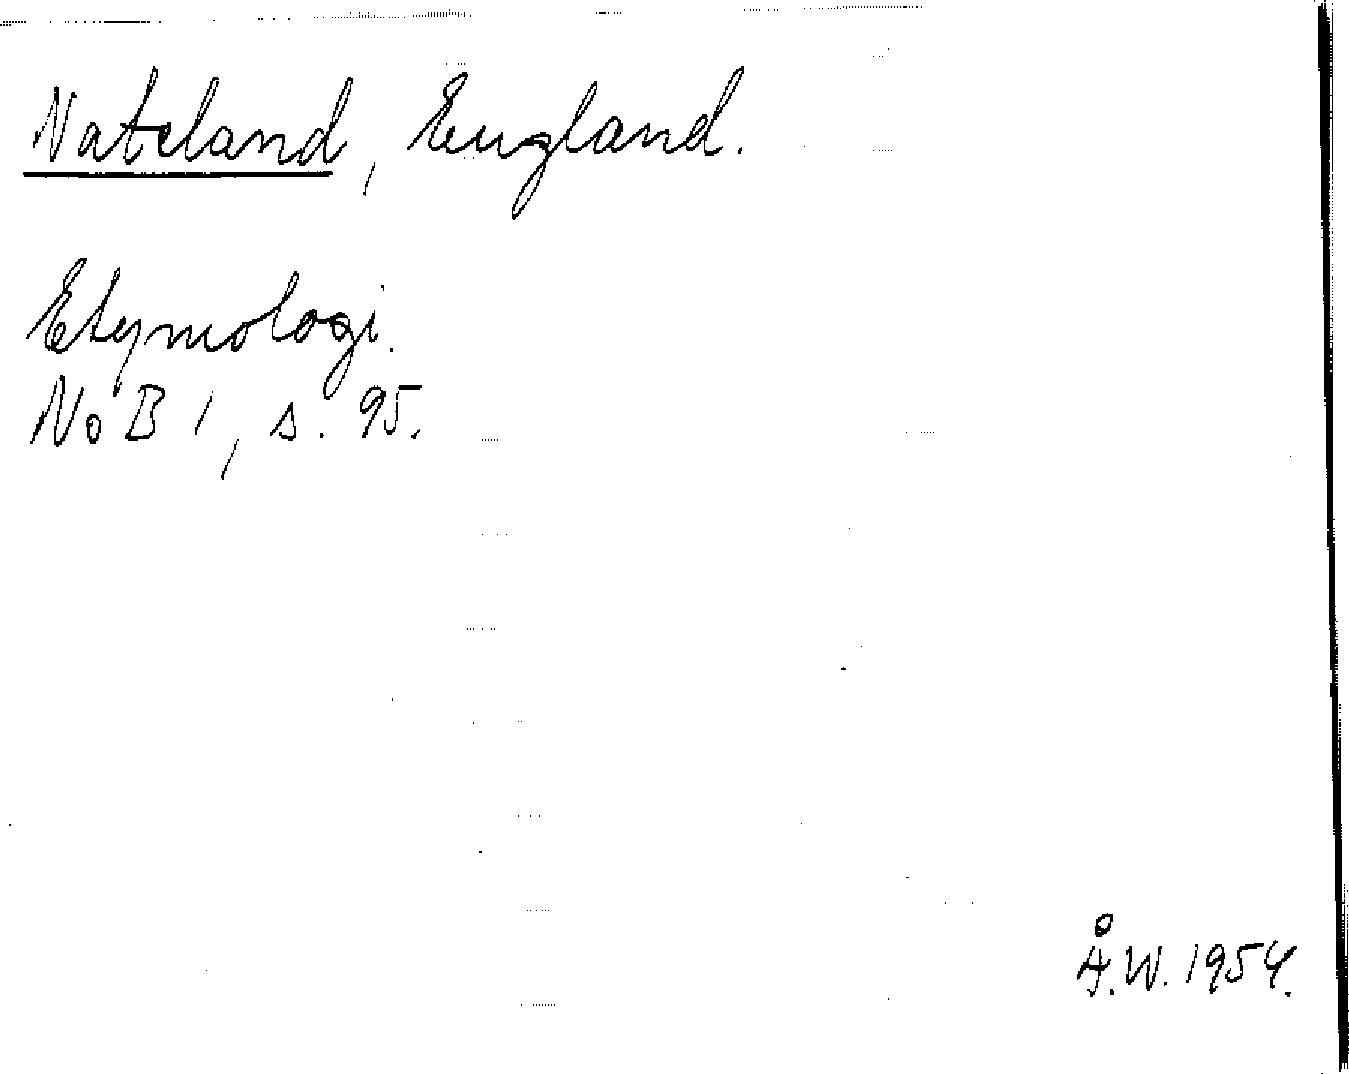 Nateland, England.
Etymologi.
NoB 1, s. 95.
Å.W. 1954.